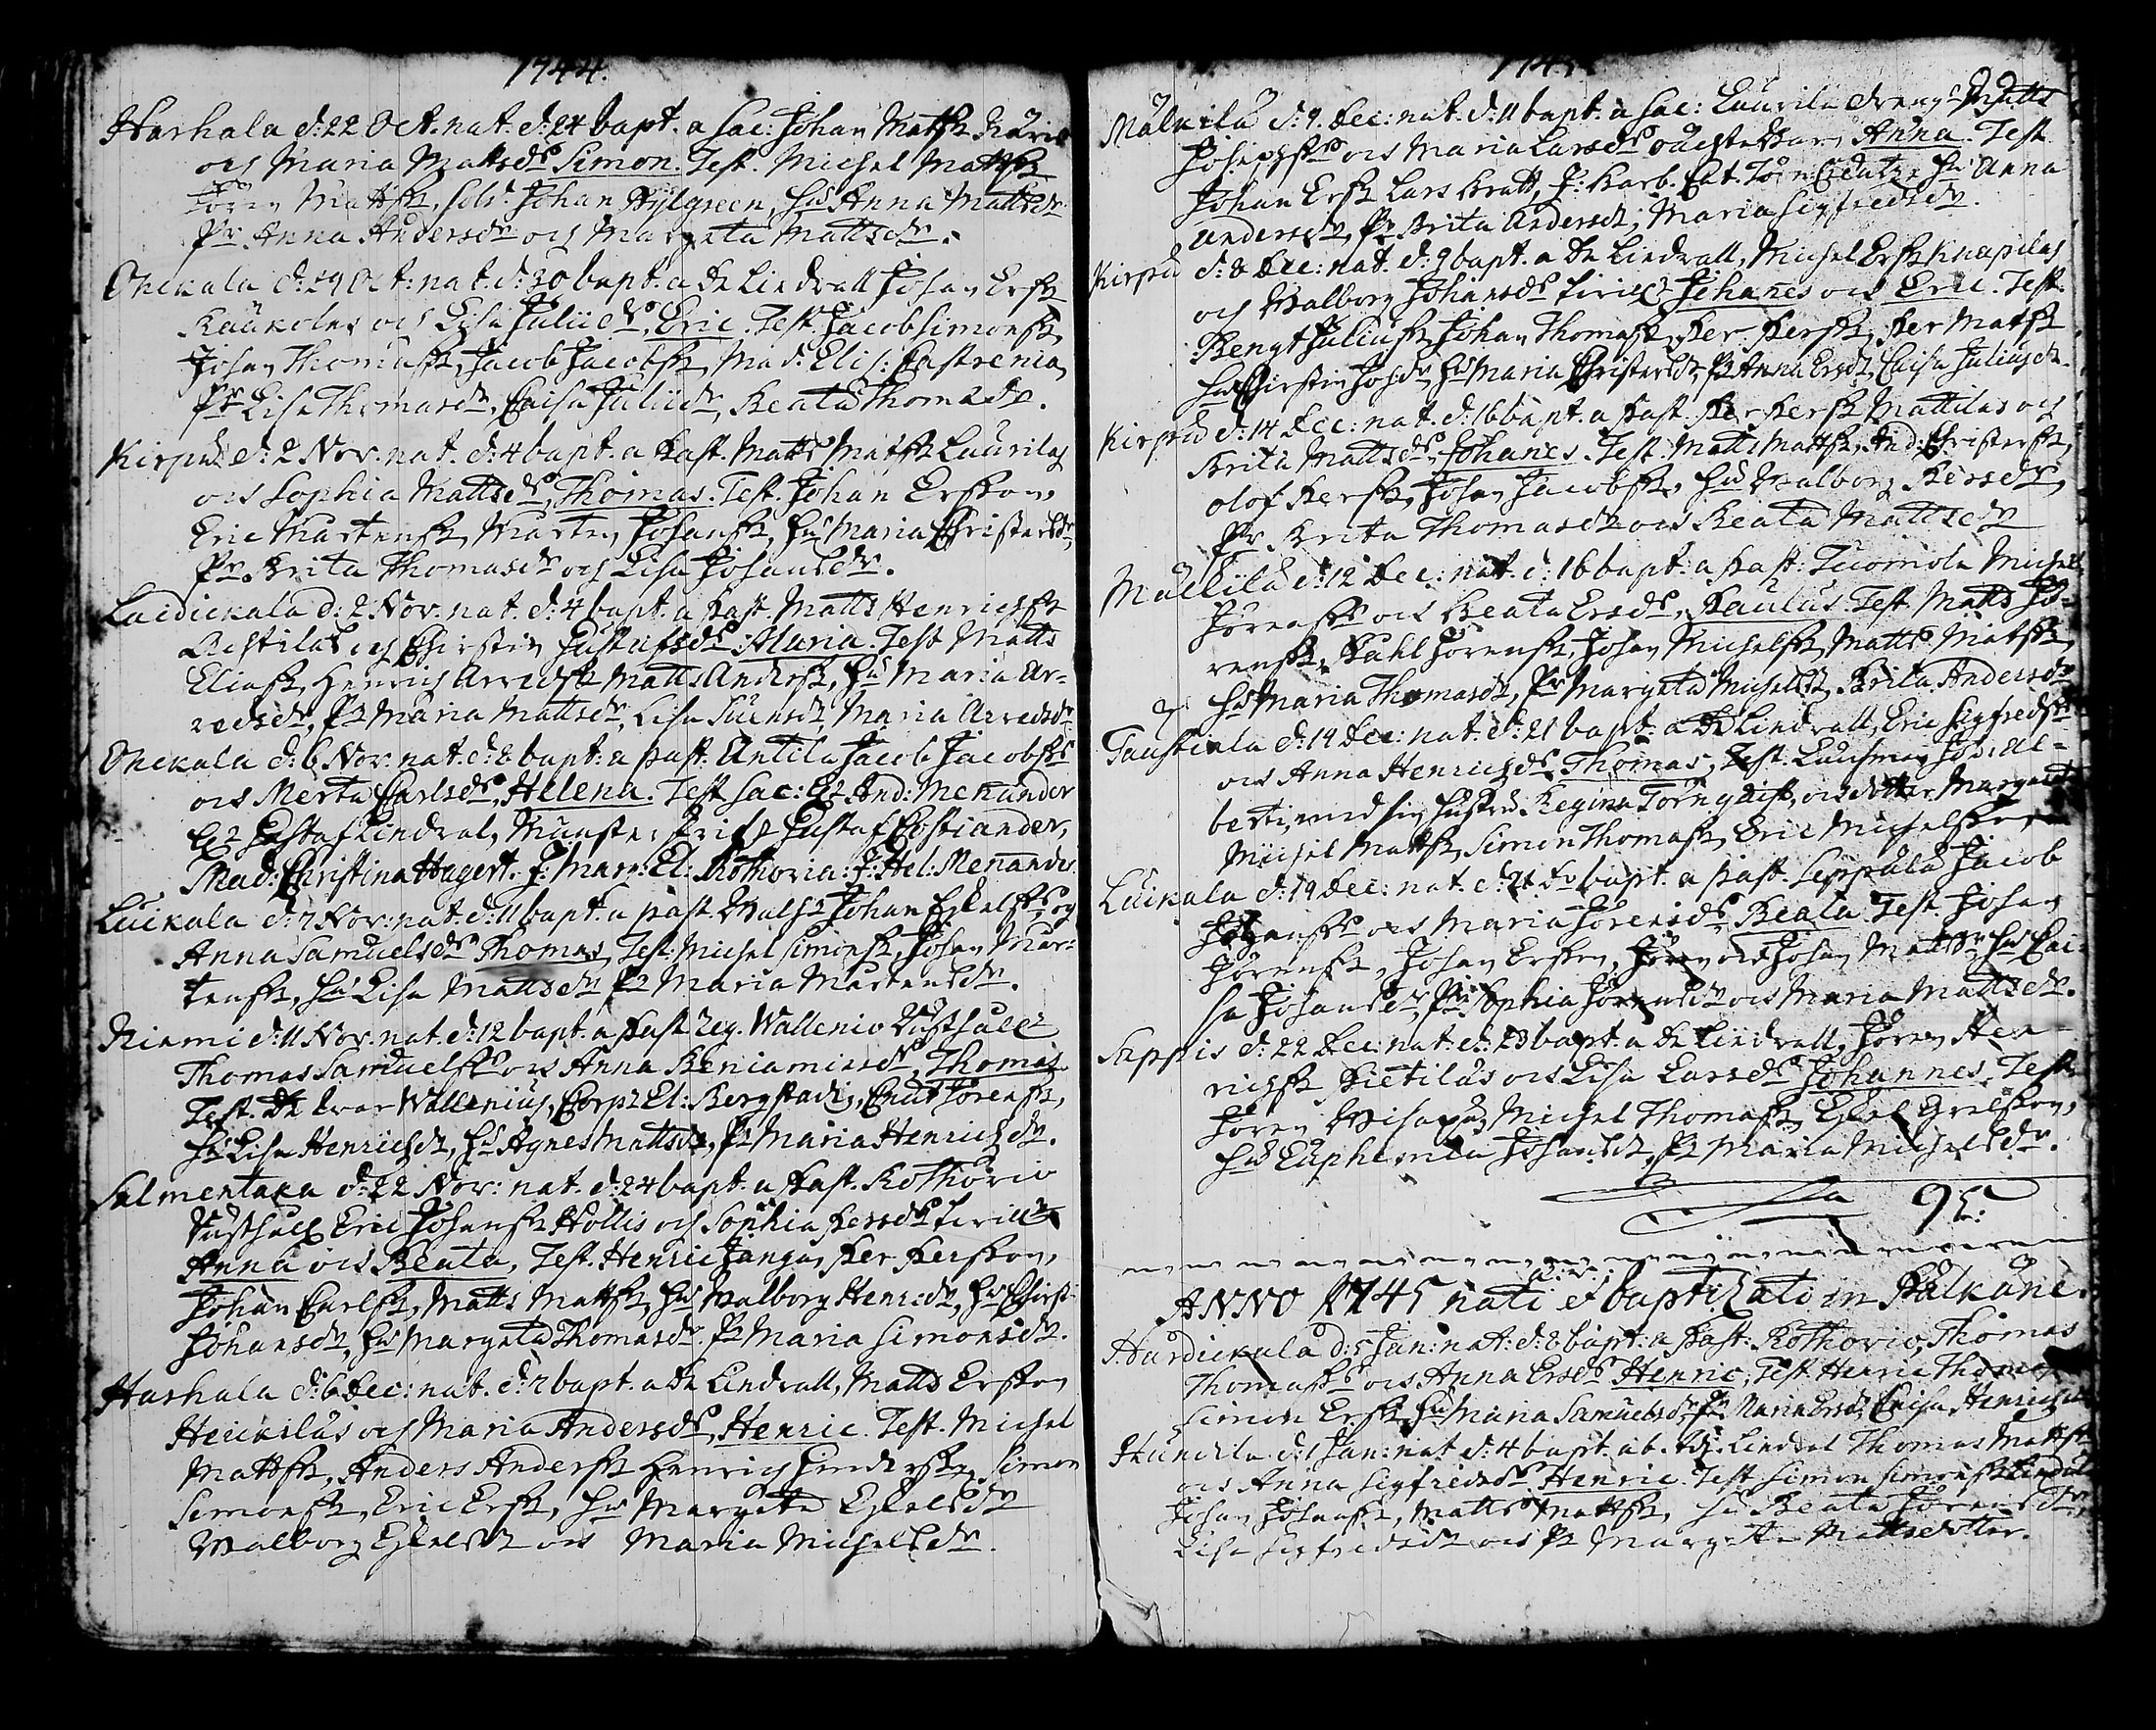 1744.
Harhala d: 22 Oct. nat. d: 24 bapt. a Sac: Johan Mattss
och Maria Mattsds Simon. Test. Michel Mattss
Jören Mattss, Sold. Johan Hylgreen, Hu Anna Mattsdr
Pr Anna Andersdr och Margeta Mattsdr.
Onckala d: 29 Oct: nat. d: 30 bapt. a Dn Lindvall Johan Erss
Kaukolas och Lisa Juliids, Eric. Test. Jacob Simonss,
Johan Thomass, Jacob Jacobss, Mad. Elis: Castrenia,
Pr Lisa Thomasdr, Caisa Juliidr, Beata Thomasdr.
Kirpu d: 2 Nov. nat. d: 4 bapt. a Past. Matts Mattss Laurilas
och Sophia Mattsds, Thomas. Test. Johan Ersson,
Eric Martenss, Marten Johanss, Hu Maria Christersdr,
Pr. Brita Thomasdr och Lisa Johansdr.
Laidickala d: 2 Nov. nat. d: 4 bapt. a Past. Matts Henrichss
och Christin Gustafsds Maria. Test Matts
Eliass, Henrich Arvedss Matts Anderss, Hu Maria Ar-
vedsdr, Pr Maria Mattsdr, Lisa Suensdr, Maria Arvedsdr
Onckala d: 6 Nov. nat. d: 8 bapt. a Past. Antila Jacob Jacobss
och Merta Carlsds, Helena. Test Sac: And: Menander
Gustaf Lindval, Gustaf Costiander,
Mad: Christina Hagert. J: Marg: El: Rothovia: J: Hel: Menander
Luickala d: 7 Nov: nat. d: 11 bapt. a Past. Johan Eskelss och
Anna Samuelsds Thomas, Test. Michel Simonss, Johan Mar-
tenss, Hu Lisa Mattsdr Pr Maria Martensdr.
Niemi d: 11 Nov. nat. d: 12 bapt. a Past. reg. Wallenio
Thomas Samuelss och Anna Beniaminsds, Thomas
Test. Dn Ivar Wallenius, Corp: El: Bergstadi, Cnut Jörenss,
Hu Lisa Henrichsdr, Hu Agnes Mattsdr, Pr Maria Henrichsdr.
Salmentaka d: 22 Nov: nat. d: 24 bapt. a Past. Rothovio
Eric Johanss Hollis och Sophia Persds
Anna och Beata, Test. Henric Per Persson,
Johan Carlss, Matts Mattss, Hu Walborg Henricsdr, Hu Christ:
Johansdr, Hu Margeta Thomasdr. Pr Maria Simonsdr.
Harhala d: 6 Dec: nat. d: 7 bapt. a Dn Lindvall, Matts Ersson
Heickilas och Maria Andersds, Henric. Test. Michel
Mattss, Anders Anderss Henrich Simon
Simonss, Eric Erss, Hu Margeta Eskelsdr
Walborg Eskelsdr och Maria Michelsdr.
1745.
Mälkilä d: 9 Dec: nat. d: 11 bapt. a Sac: Laurila dreng Matts
Josephss och Maria Larsds Anna. Test
Johan Erss Lars Hu Anna
Andersdr, Pr Brita Andersdr, Maria Sigfredsdr.
Kirpu d: 8 Dec: nat. d: 9 bapt. a Dn Lindvall, Michel Erss Knapilas
och Walborg Johansds Johanes och Eric. Test.
Bengt Juliuss Johan Thomass, Per Perss, Per Matss
Hu Christin Johdr, Hu Maria Christersdr, Pr Anna Ersdr, Caisa Juliusdr.
Kirpu d: 14 Dec: nat. d: 16 bapt. a Past. Per Perss Mattilas och
Brita Mattsds, Johanes. Test. Matts Mattss, And: Christerss,
Olof Perss, Johan Jacobss, Hu Walborg Persdr,
Pr. Brita Thomasdr och Beata Mattsdr
Mällilä d: 12 Dec: nat. d: 16 bapt. a Past. Tuomola Michel
Jörenss och Beata Ersds, Paulus. Test Matts Jö-
renss, Pahl Jörenss, Johan Michelss, Matts Matss
Hu Maria Thomasdr, Pr Margeta Michelsdr, Brita Andersdr
Taustiala d: 19 Dec: nat. d: 21 bapt. a Dn Lindvall, Eric Sigfredss
och Anna Henrichsds, Thomas, Test. Jöd: Al-
berti, med sin hustru Regina Törnquist, och dotter Margareta
Michel Mattss, Simon Thomass, Eric Michelsson
Luikala d: 19 Dec: nat. d: 21 bapt. a Past. Seppälä Jacob
Johanss och Maria Jörensds Beata. Test Johan
Jörenss, Johan Ersson, Jören och Johan Mattss Hu Cai-
sa Johansdr, Pr Sophia Jörensdr och Maria Mattsdr.
Sappis d: 22 Dec: nat. d: 23 bapt. a Dn Lindvall, Jören Hen-
richss Pietilas och Lisa Larsds, Johannes. Test
Jören Michel Thomass, Eskel
Hu Euphemia Johansdr, Pr Maria Michelsdr.
95.
ANNO 1745 nati et baptizati in Pälkäne.
Hurdickala d: 5 Jan: nat: d: 8 bapt: a Past: Rothovio, Thomas
Thomass och Anna Ersds Henric, Test Henric Thomass
Simon Erss Hu Maria Samuelsdr, Pr Maria Ersdr, Caisa Henrichsdr
d: 1 Jan: nat d: 4 bapt. ab. Lindval Thomas Mattss
och Anna Sigfredsds Henric Test Simon Simonss
Johan Johanss, Matts Mattss, Hu Beata Jörensdr
Lisa Sigfredsdr och Pr Margeta Mattsdotter.